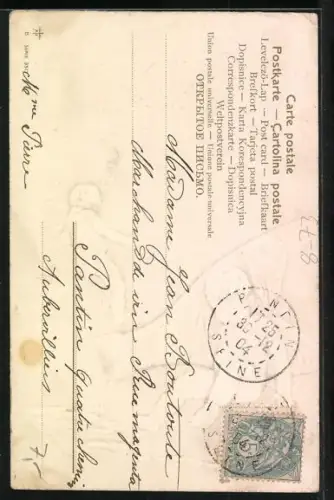 Carte postale
Postkarte — Cartolina postale
Levelező-Lap — Post card — Briefkaart
Brefkort — Tarjeta postal
Dopisnice — Karta Korespondencyjna
Correspondenzkarte — Dopisnica
Weltpostverein
Union postale universelle — Unione postale universale
ОТКРЫТОЕ ПИСЬМО.
PANTIN
25
30 -12
04
SEINE
Madame Jean Boutoule
Marchande vin Rue magenta
Pantin quatre chemins
Aubervilliers
Mme Pierre
78-8
7,-